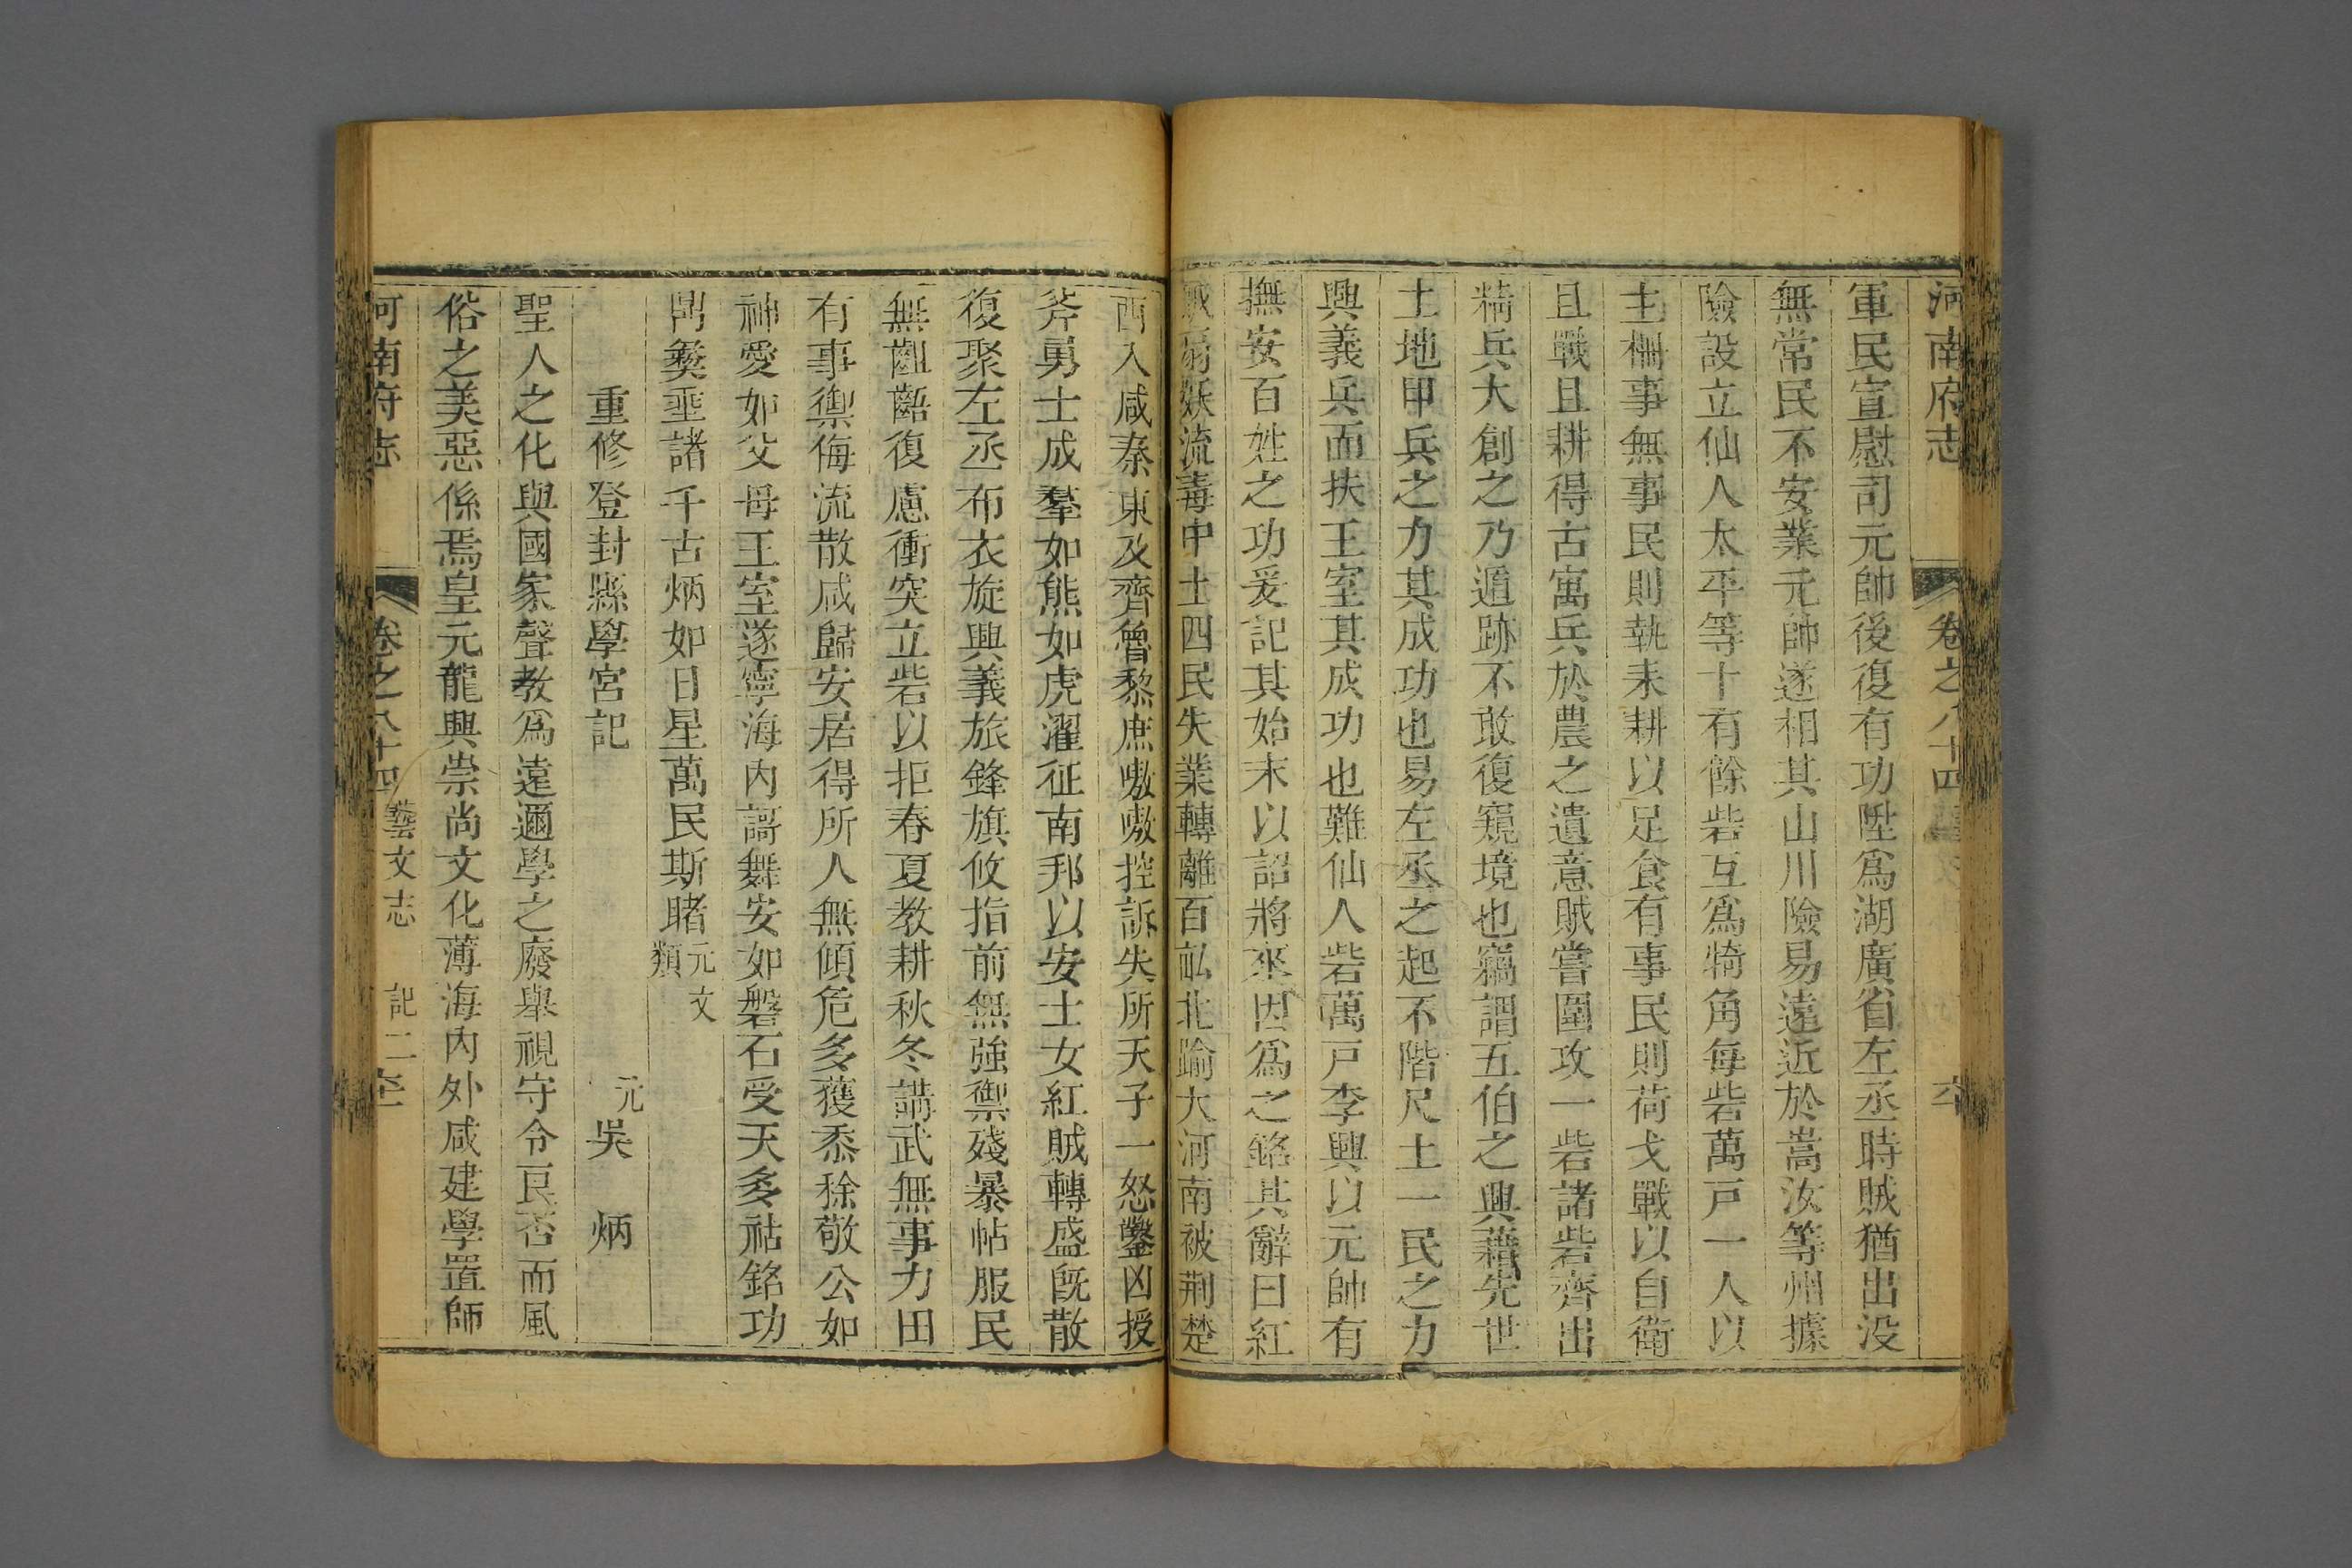 河南府志 卷之八十四
軍民宣慰司元帥後復有功陞爲湖廣省左丞時賊猶出没
無常民不安業元帥遂相其山川險易遠近於嵩汝等州據
險設立仙人太平等十有餘砦互爲犄角每砦萬戸一人以
主柵事無事民則執耒耕以足食有事民則荷戈戰以自衛
且戰且耕得古寓兵於農之遺意賊嘗圍攻一砦諸砦齊出
精兵大創之乃遁跡不敢復窺境也竊謂五伯之興藉先世
土地甲兵之力其成功也易左丞之起不階尺土一民之力
興義兵而扶王室其成功也難仙人砦萬戸李興以元帥有
撫安百姓之功爰記其始末以詔將來因爲之銘其辭曰紅
賊扇妖流毒中土四民失業轉離百訟北踰大河南被荆楚
西入咸秦東及齊魯黎庶嗷嗷控訴失所天子一怒鑿凶授
斧勇士成羣如熊如虎濯征南邦以安士女紅賊轉盛旣散
復聚左丞布衣旋興義旅鋒旗攸指前無強禦殘暴帖服民
無齟齬復慮衝突立砦以拒春夏教耕秋冬講武無事力田
有事禦侮流散咸歸安居得所人無傾危多獲黍稌敬公如
神愛如父母王室遂寧海内謌舞安如磐石受天多祜銘功
鼎彝垂諸千古炳如日星萬民斯睹元文類
重修登封縣學宮記 元吳炳
聖人之化與國家聲教爲遠邇學之廢舉視守令臧否而風
俗之美惡係焉皇元龍興崇尚文化薄海内外咸建學置師
河南府志 卷之八十四 藝文志 記二